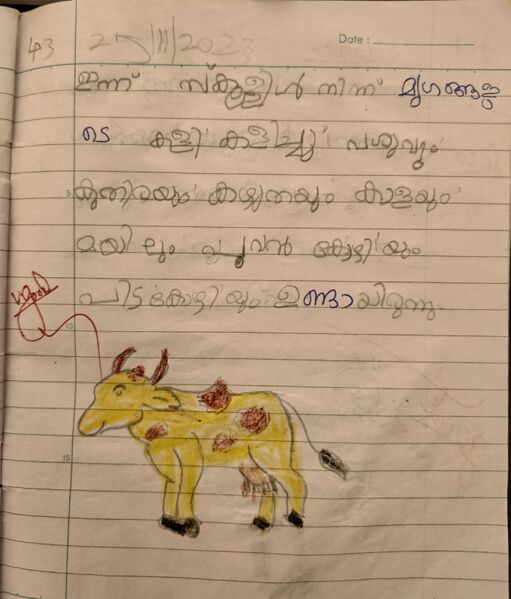 43 25/11/2023
Date :
ഇന്ന് സ്കൂളിൾ നിന്ന് മൃഗങ്ങളു
ടെ കളി കളിച്ചു പശുവും
കുതിരയും കഴുതയും കാളയും
മയിലും പൂവൻ കോഴിയും
പിടകോഴിയും ഉണ്ടായിരുന്നു.
5
10
15